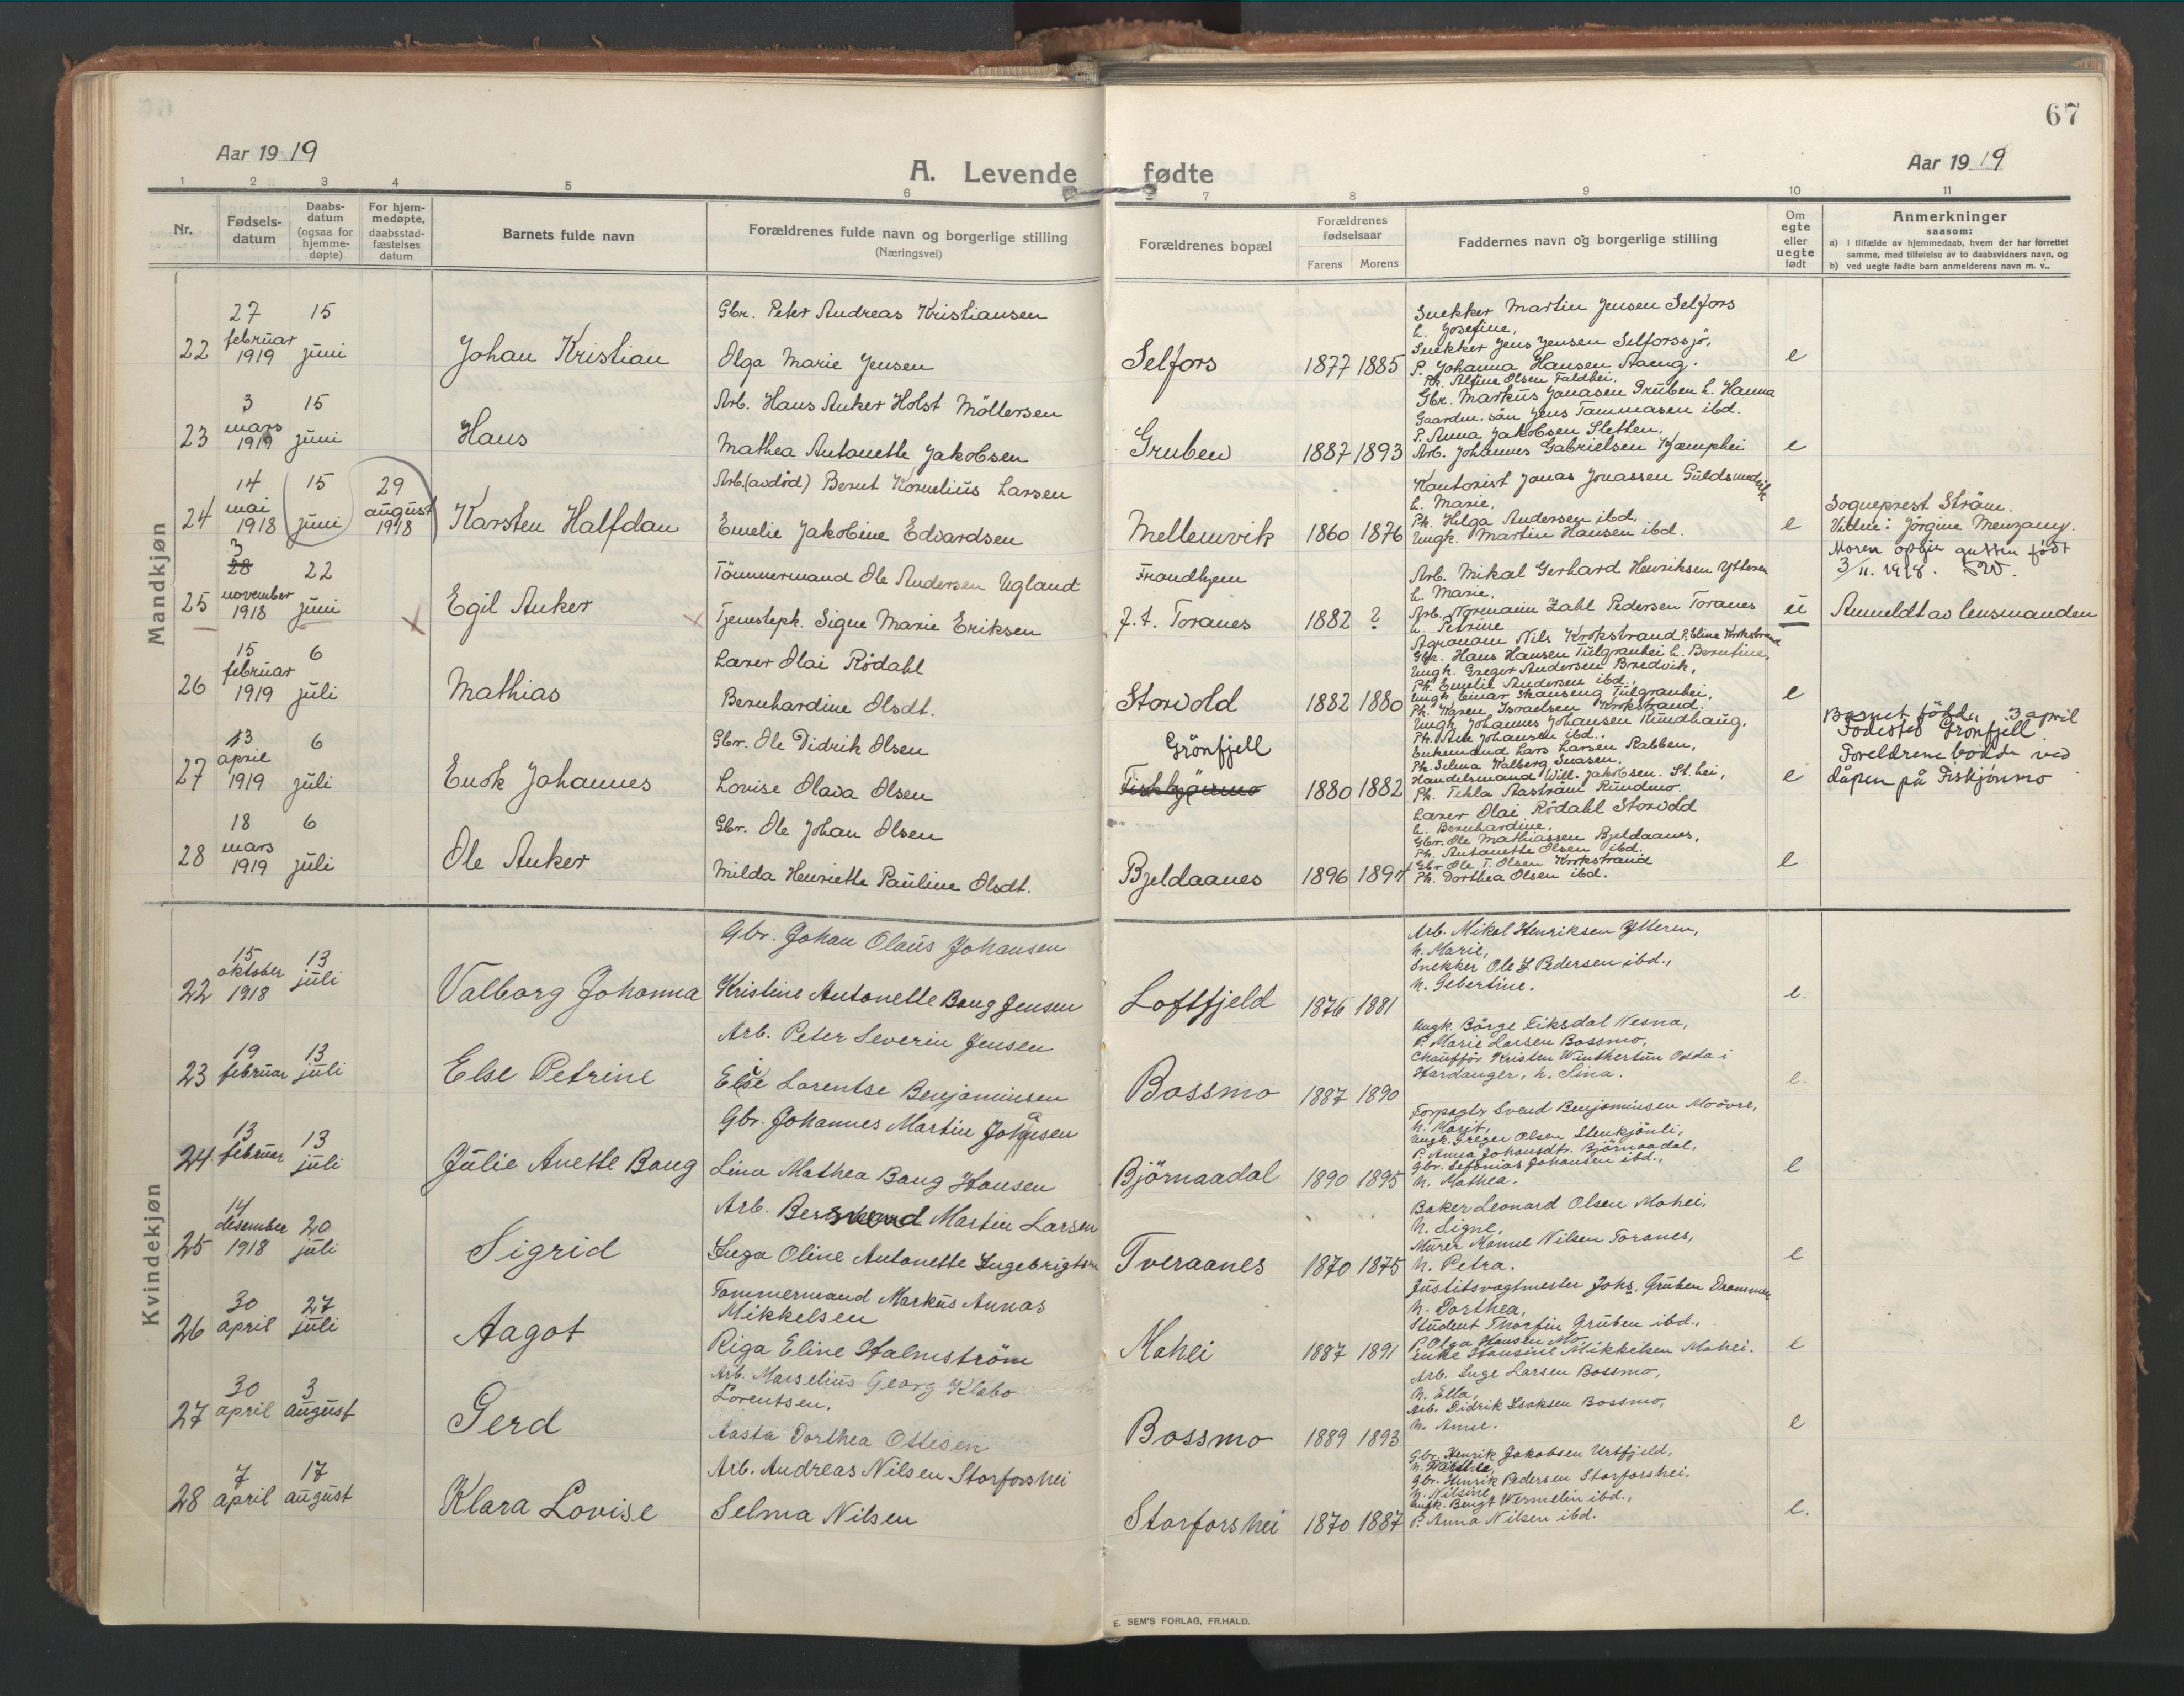 67
Aar 1919
A. Levende fødte
Aar 1919
1 2 3 4 5 6 7 8 9 10 11
Nr.
Fødsels-
datum
Daabs-
datum
(ogsaa for
hjemme-
døpte)
For hjem-
medøpte,
daabsstad-
fæstelses
datum
Barnets fulde navn
Forældrenes fulde navn og borgerlige stilling
(Næringsvei)
Forældrenes bopæl
Forældrenes
fødselsaar
Farens Morens
Faddernes navn og borgerlige stilling
Om
egte
eller
uegte
født
Anmerkninger
saasom:
a) i tilfælde av hjemmedaab, hvem der har forrettet
samme, med tilføielse av to daabsvidners navn, og
b) ved uegte fødte barn anmelderens navn m. v..
Mandkjøn
22
27
februar
1919
15
juni
Johan Kristian
Gbr. Peter Andreas Kristiansen
Olga Marie Jensen
Selfors
1877 1885
Snekker Martin Jensen Selfors
h. Josefine,
Snekker Jens Jensen Selforssjö,
P. Johanna Hansen Aaeng.
Ph. Alfine Olsen Faldhei.
e
23
3
mars
1919
15
juni
Hans
Arb. Hans Anker Holst Möllersen
Mathea Antonette Jakobsen
Gruben
1887 1893
Gbr. Markus Jonasen Gruben h. Hanna
Gaardm. sön Jens Tammasen ibd.
P. Anna Jakobsen Sletten,
Arb. Johannes Gabrielsen Kjæmphei
e
24
14
mai
1918
15
juni
29
august
1918
Karsten Halfdan
Arb. (avdöd) Bernt Kornelius Larsen
Emelie Jakobine Edvardsen
Mellemvik
1860 1876
Kontorist Jonas Jonassen Guldsmedvik
h. Marie,
Ph. Helga Andersen ibd.
Ungk. Martin Hansen ibd.
e
Sogneprest Ström.
Vitne: Jörgine Menzany.
25
3
28
november
1918
22
juni
Egil Anker
Tömmermand Ole Andersen Ugland
Tjenesteph. Signe Marie Eriksen
Trondhjem
f. t. Toranes
1882 ?
Arb. Mikal Gerhard Henriksen Ytteren
h. Marie,
Arb. Normann Zahl Pedersen Toranes
h. Petrine
Agronom Nils Krokstrand P. Eline Krokstrand
u
Moren opgir gutten født
3/11. 1918.
Anmeldt av lensmanden
26
15
februar
1919
6
juli
Mathias
Lærer Olai Rödahl
Bernhardine Olsdt.
Storvold
1882 1880
Gbr. Hans Hansen Tulgranhei h. Berntine,
Ungk. Gregor Andersen Bredvik,
Ph. Emelie Andersen ibd.,
Ungk. Einar Skanseng Tulgranhei,
Ph. Karen Israelsen Krokstrand.
e
27
13
april
1919
6
juli
Enok Johannes
Gbr. Ole Didrik Olsen
Lovise Olava Olsen
Grönfjell
Fiskhjönmo
1880 1882
Ungk. Johannes Johansen Rundhaug,
Ph. Ane Johansen ibd..
Enkemand Lars Larsen Rabben,
Ph. Selma Valberg Jenasen,
Handelsmand Will. Jakobsen. St. hei,
Ph. Tekla Aaström Rundmo.
e
Barnet födt 3 april
Födested Grönfjell
Foreldrene bodde ved
dåpen på Fiskjönmo
28
18
mars
1919
6
juli
Ole Anker
Gbr. Ole Johan Olsen
Milda Henriette Pauline Olsdt.
Bjeldaanes
1896 1894
Lærer Olai Rödahl Storvold
h. Bernhardine,
Gbr. Ole Mathiassen Bjeldaanes,
Ph. Antonette Olsen ibd.
Gbr. Ole T. Olsen Krokstrand
Ph. Dorthea Olsen ibd.
e
Kvindekjøn
22
15
oktober
1918
13
juli
Valborg Johanna
Gbr. Johan Olaus Johansen
Kristine Antonette Bang Jensen
Loftfjeld
1876 1881
Arb. Mikal Henriksen Ytteren,
h. Marie,
Snekker Ole Z Pedersen ibd.,
h. Gebertine.
e.
23
19
februar
13
juli
Else Petrine
Arb. Peter Severin Jensen
Elise Lorentse Benjaminsen
Bossmo
1887 1890
Ungk. Börge Eiksdal Nesna,
P. Marie Larsen Bossmo,
Chauffør Kristen Winthertun Odda i
Hardanger, h. Sina.
e.
24.
13
februar
13
juli
Julie Anette Bang
Gbr. Johannes Martin Johansen
Lina Mathea Bang Hansen
Björnaadal
1890 1895
Forpagtr Svend Benjaminsen Moövre,
h. Marit,
Ungk. Greger Olsen Stenkjönli,
P. Anna Johansdtr. Björnaadal,
Gbr. Sefanias Johansen ibd.,
h. Mathea.
e
25
14
desember
1918
20
juli
Sigrid
Arb. Bersvend Martin Larsen
Inga Oline Antonette Ingebrigtsen
Tveraanes
1870 1875
Baker Leonard Olsen Mohei,
h. Signe,
Murer Manne Nilsen Toranes,
h. Petra.
e
26
30
april
27
juli
Aagot
Tømmermand Markus Annas
Mikkelsen
Riga Eline Halmström
Mohei
1887 1891
Justitsvagtmester Johs. Gruben Drammen
h. Dorthea,
Student Thorfin Gruben ibd.,
P. Olga Hansen Mo
enke Hansine Mikkelsen Mohei.
e
27
30
april
3
august
Gerd
Arb. Marselius Georg Klebo
Lorentsen.
Aasta Dorthea Ottesen
Bossmo
1889 1893
Arb. Inge Larsen Bossmo,
h. Ella,
Arb. Didrik Isaksen Bossmo,
h. Anne.
e
28
7
april
17
august
Klara Lovise
Arb. Andreas Nilsen Storforshei
Selma Nilsen
Storforshei
1870 1887
Gbr. Henrik Jakobsen Urtfjeld,
h. Dorthea,
Gbr. Henrik Pedersen Storforshei,
h. Nilsine
Ungk. Bengt Wermelin ibd.,
P. Anna Nilsen ibd.
e.
E. SEM'S FORLAG, FR.HALD.